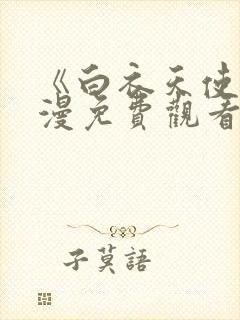 《白衣天使
漫免費觀看
子莫語